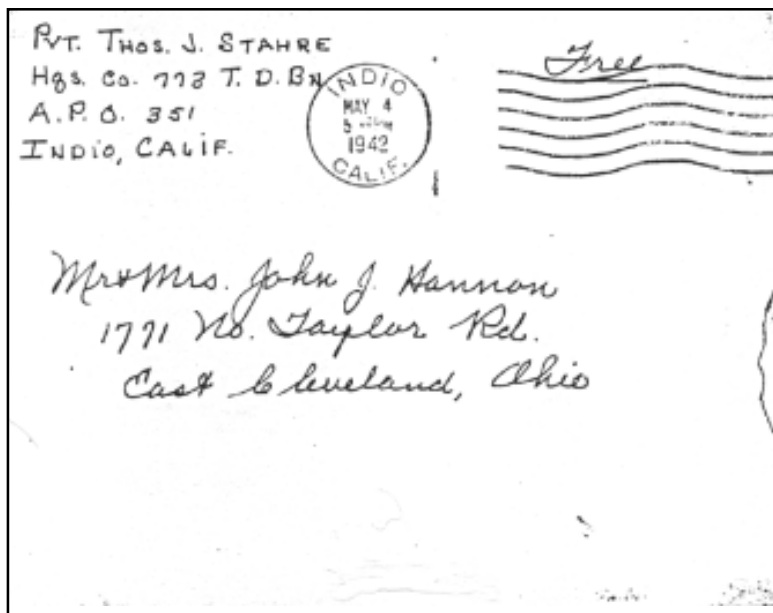 PVT. THOS. J. STAHRE
Hqs. Co. 773 T. D. BN
A. P. O. 351
INDIO, CALIF.
INDIO
MAY 4
5
1942
CALIF.
Free
Mr & Mrs. John J. Hannon
1771 No. Taylor Rd.
East Cleveland, Ohio